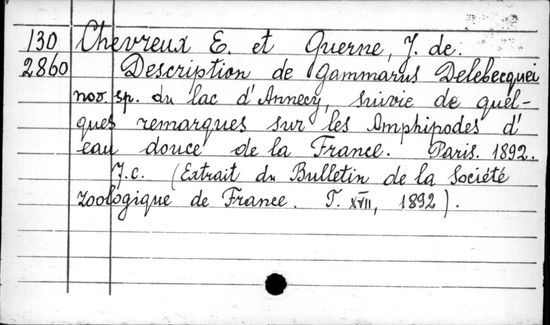 130 Chevreux E. et Guerne, J. de.
2860 Description de Gammarus Delebecquei
nov. sp. du lac d'Annecy, suivie de quel-
ques remarques sur les Amphipodes d'
eau douce de la France. Paris. 1892.
J.c. (Extrait du Bulletin de la Société
zoologique de France. T. XVII, 1892).